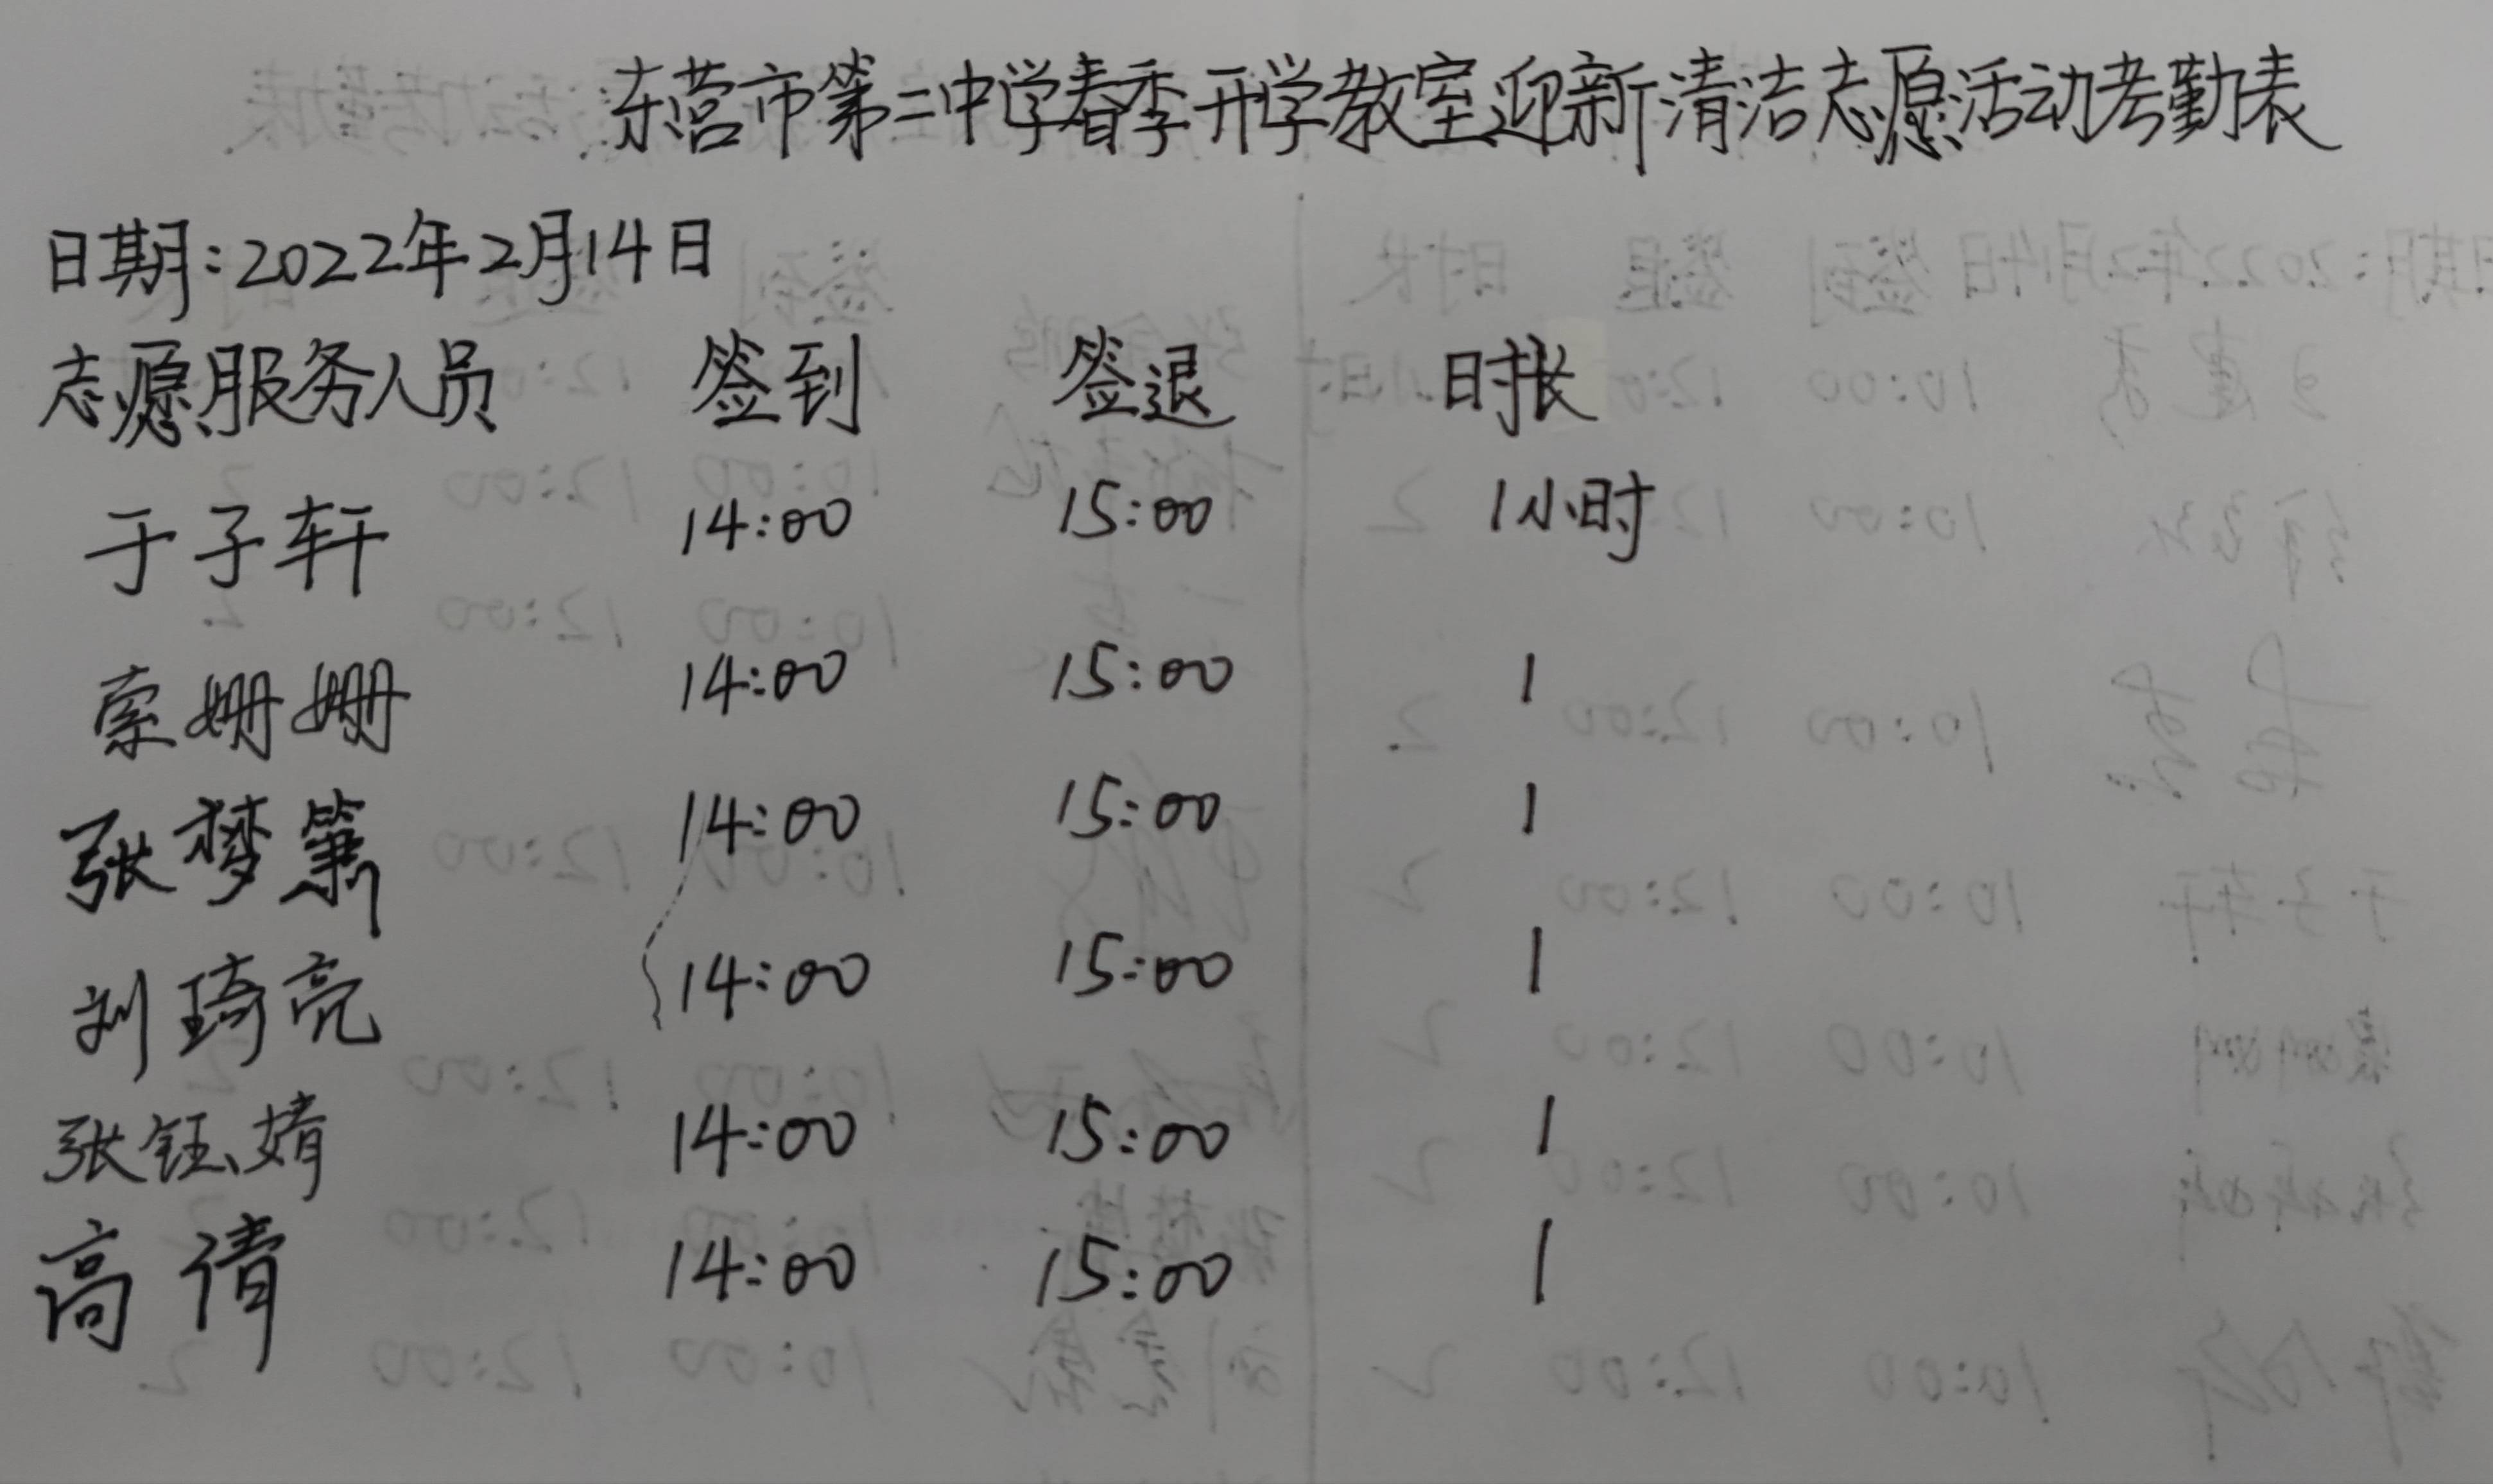 东营市第二中学春季开学教室迎新清洁志愿活动考勤表
日期:2022年2月14日
志愿服务人员 签到 签退 时长
于子轩 14:00 15:00 1小时
索姗姗 14:00 15:00 1
张梦 14:00 15:00 1
刘琦亮 14:00 15:00 1
张钰婧 14:00 15:00 1
高倩 14:00 15:00 1